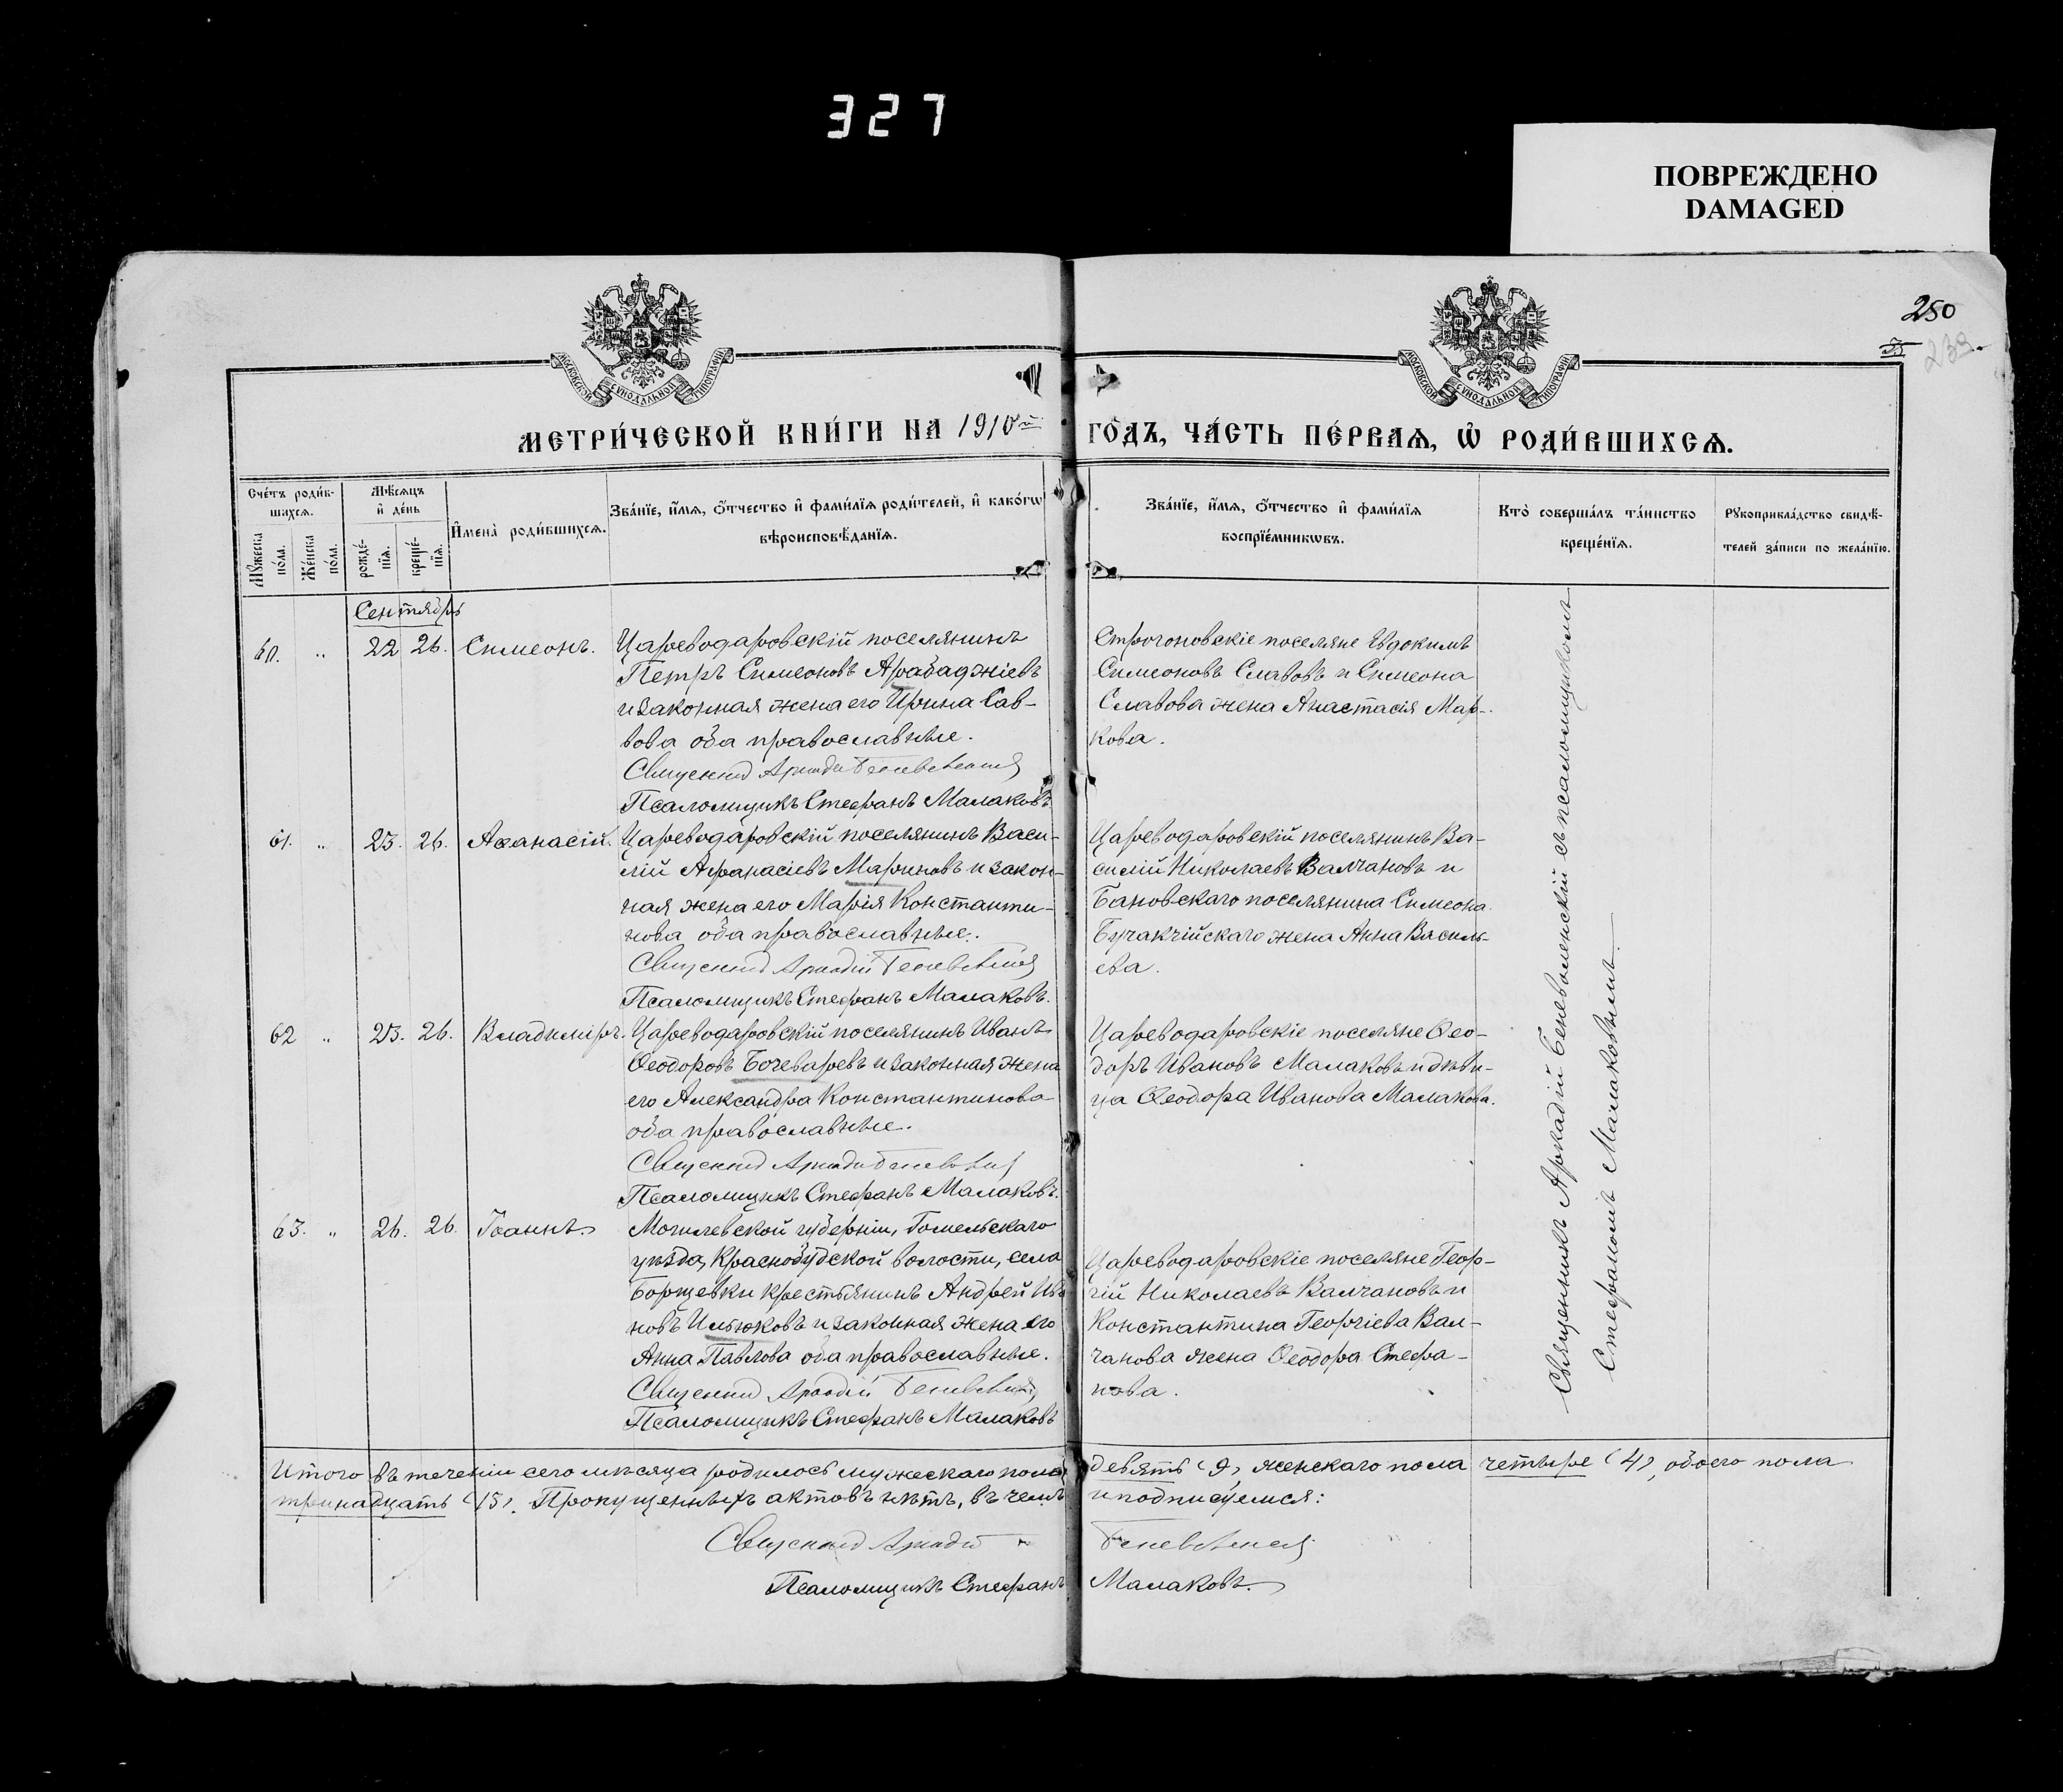 327
ПОВРЕЖДЕНО
DAMAGED
250
239.
МОСКОВСКОЙ СѴНОДАЛЬНОЙ ТИПОГРАФІИ
МОСКОВСКОЙ СѴНОДАЛЬНОЙ ТИПОГРАФІИ
МЕТРИ́ЧЕСКОЙ КНИ́ГИ НА 1910й ГО́ДЪ, ЧА́СТЬ ПЕ́РВАѦ, Ѡ РОДИ́ВШИХСѦ.
Сче́тъ роди́в-
шихсѧ.
Мꙋ́жеска
по́ла.
Же́нска
по́ла.
Мѣ́сѧцъ
и҆ де́нь
рожде́-
нїѧ.
креще́-
нїѧ.
И҆мена̀ роди́вшихсѧ.
Зва́нїе, и҆́мѧ, ѻ҆́тчество и҆ фами́лїѧ роди́телей, и҆ како́гѡ
вѣроисповѣ́данїѧ.
Зва́нїе, и҆́мѧ, ѻ҆́тчество и҆ фами́лїѧ
воспрїе́мникѡвъ.
Кто̀ соверша́лъ та́инство
креще́нїѧ.
Рꙋкоприкла́дство свидѣ́-
телей за́писи по жела́нїю.
Сентябрь
60. „ 22 26. Симеонъ. Царeводаровскій поселянинъ
Петръ Симеоновъ Арабаджіевъ
и законная жена его Ирина Сав-
вова оба православные.
Священникъ Аркадій Беневоленскій
Псаломщикъ Стефанъ Малаковъ
Строгоновскіе поселяне Евдокимъ
Симеоновъ Славовъ и Симеона
Славова жена Анастасія Мар-
кова.
61. „ 23. 26. Аѳанасій. Цареводаровскій поселянинъ Васи-
лій Афанасіевъ Мариновъ и закон-
ная жена его Марія Константи-
нова оба православные.
Священникъ Аркадій Беневоленскій
Псаломщикъ Стефанъ Малаковъ.
Цареводаровскій поселянинъ Ва-
силій Николаевъ Валчановъ и
Бановскаго поселянина Симеона
Бучакчійскаго жена Анна Василь-
ева.
62 „ 23. 26. Владиміръ. Цареводаровскій поселянинъ Иванъ
Ѳеодоровъ Бочеваревъ и законная жена
его Александра Константинова
оба православные.
Священникъ Аркадій Беневоленскій
Псаломщикъ Стефанъ Малаковъ.
Цареводаровскіе поселяне Ѳео-
доръ Ивановъ Малаковъ и дѣви-
ца Ѳеодора Иванова Малакова.
63. „ 26. 26. Іоаннъ. Могилевской губерніи, Гомельскаго
уѣзда, Краснобудской волости, села
Борщевки крестьянинъ Андрей Ива
новъ Ильюковъ и законная жена его
Анна Павлова оба православные.
Священникъ Аркадій Беневоленскій
Псаломщикъ Стефанъ Малаковъ
Цареводаровскіе поселяне Геор-
гій Николаевъ Валчановъ и
Константина Георгіева Вал-
чанова жена Ѳеодора Стефа-
нова.
Священникъ Аркадій Беневоленскій съ псаломщикомъ
Стефаномъ Малаковымъ.
Итого въ теченіи сего мѣсяца родилось мужескаго пола девять (9), женскаго пола четыре (4), обоего пола
тринадцать (13). Пропущенныхъ актовъ нѣтъ, въ чемъ и подписуемся:
Священникъ Аркадій Беневоленскій
Псаломщикъ Стефанъ Малаковъ.